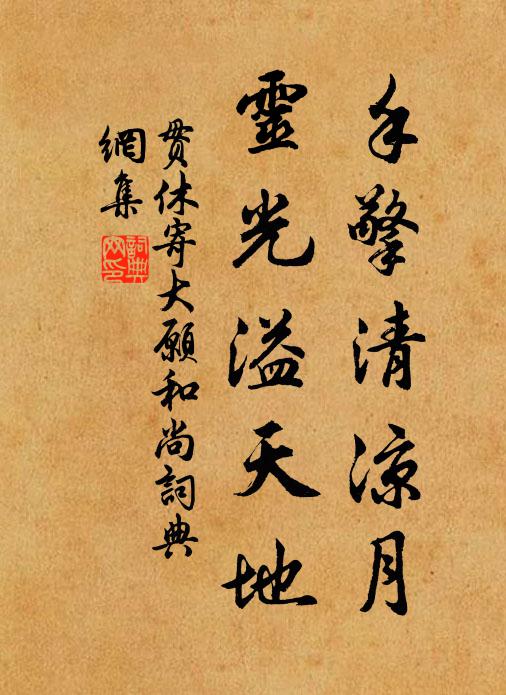 手擎清涼月
靈光溢天地
貫休寄大願和尚詞典
網集
詞典網印